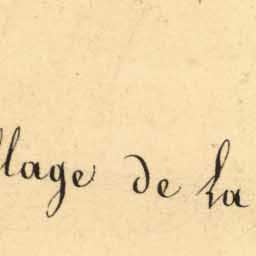 llage de La